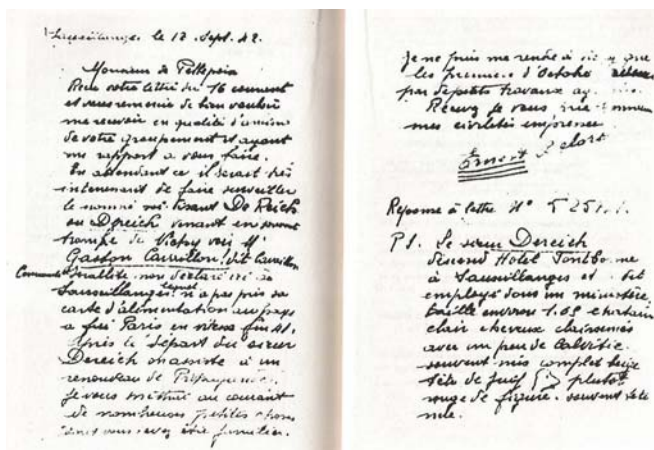 Sauxillanges le 18 Sept. 42.
Monsieur de Pellepoix
Reçu votre lettre du 16 courant
et vous remercie de bien vouloir
me recevoir en qualité d'ami
de votre groupement et ayant
un rapport a vous faire.
En attendant ce il serait très
intéressant de faire surveiller
le nommé soi-disant De Reich
ou Dereich venant en
trompe de Vichy voir Mr
Gaston Cauvillon dit Cauvillon
Communiste non déclaré ici à
Sauxillanges lequel n'a pas pris sa
carte d'alimentation au pays
a fui Paris en fin 41.
Après le départ du sieur
Dereich on assiste à un
renouveau de Propagande.
Je vous mettrai au courant
de nombreuses petites choses
dont vous avez être familier.
Je ne puis me rendre à que
les premiers d'Octobre
par des petits travaux
Recevez je vous prie
mes civilités empressées
Ernest
Réponse à lettre N° 525
PS. Le sieur Dereich
descend Hotel
à Sauxillanges et se dit
employé dans un ministère.
taille environ 1.65 chatain
clair cheveux clairsemés
avec un peu de calvitie.
souvent mis complet beige
tête de juif plutot
rouge de figure. souvent tête
nue.